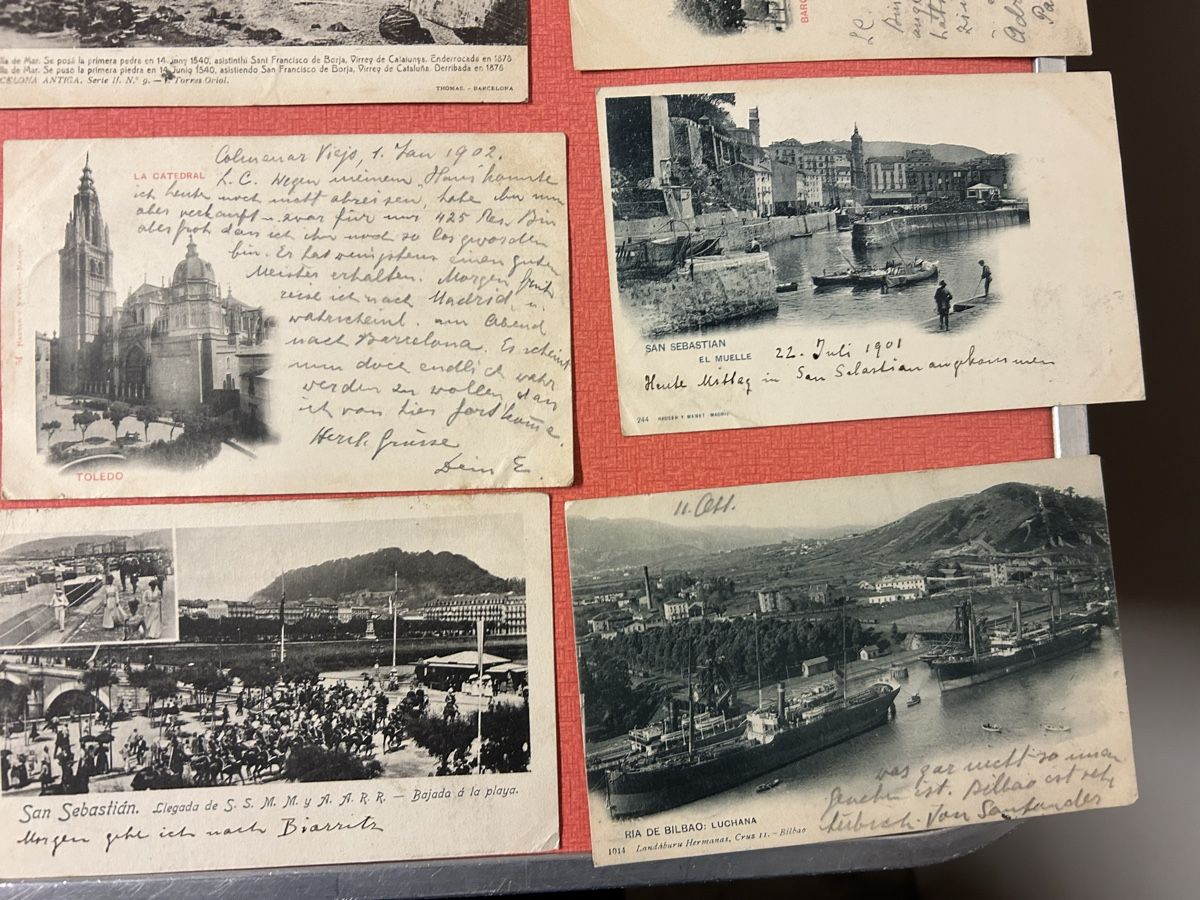 lla de Mar. Se posá la primera pedra en 14 juny 1540, asistinthi Sant Francisco de Borja, Virrey de Catalunya. Enderrocada en 1878
lla de Mar. Se puso la primera piedra en 14 Junio 1540, asistiendo San Francisco de Borja, Virrey de Cataluña. Derribada en 1878
CELONA ANTIGA. Serie II. N.º 9. - F. Torres Oriol.
THOMAS. - BARCELONA
BARC
L C
LA CATEDRAL
Colmenar Viejo, 1. Jan 1902.
L. C. Wegen meinem "Haus konnte
ich heute noch nicht abreisen, habe ihn nun
aber verkauft - zwar für nur 425 Pes. Bin
aber froh dass ich ihn noch so los geworden
bin. Er hat wenigstens einen guten
Meister erhalten. Morgen früh
reise ich nach Madrid u.
wahrscheinl. am Abend
nach Barcelona. Es scheint
nun doch endlich wahr
werden zu wollen dass
ich von hier fortkomme.
Herzl. Grüsse
Dein E.
TOLEDO
SAN SEBASTIAN
EL MUELLE
22. Juli 1901
Heute Mittag in San Sebastian angekommen
244 HAUSER Y MENET MADRID
San Sebastián. Llegada de S. S. M. M. y A. A. R. R. — Bajada á la playa.
Morgen gehe ich nach Biarritz
11. Okt.
was gar nicht so
ist. Bilbao ist
Von Santander
RÍA DE BILBAO: LUCHANA
1014 Landáburu Hermanas, Cruz 11. - Bilbao